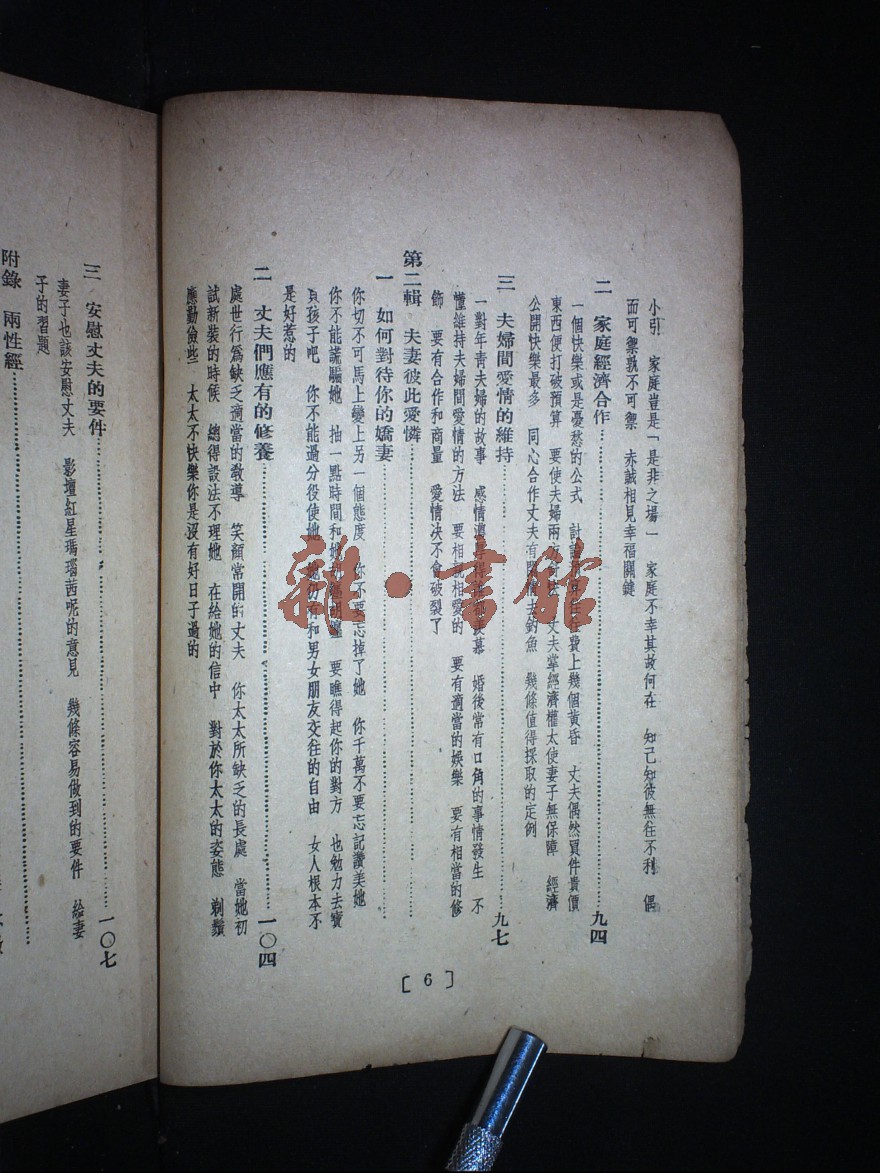 小引　家庭豈是「是非之場」　家庭不幸其故何在　知己知彼無往不利　傴
而可禦孰不可禦　赤誠相見幸福關鍵
二　家庭經濟合作…………九四
一個快樂或是憂愁的公式　計 費上幾個黃昏　丈夫偶然買件貴價
東西便打破預算　要使夫婦兩方 丈夫掌經濟權太使妻子無保障　經濟
公開快樂最多　同心合作丈夫有 去釣魚　幾條值得採取的定例
三　夫婦間愛情的維持…………九七
一對年青夫婦的故事　感情濃 羨慕　婚後常有口角的事情發生　不
懂維持夫婦間愛情的方法　要相親相愛的　要有適當的娛樂　要有相當的修
飾　要有合作和商量　愛情决不會破裂了
第二輯　夫妻彼此愛憐
一　如何對待你的嬌妻…………
你切不可馬上變上另一個態度　你不要忘掉了她　你千萬不要忘記讚美她
你不能謊騙她　抽一點時間和她 要瞧得起你的對方　也勉力去寶
貝孩子吧　你不能過分役使她　她仍有和男女朋友交往的自由　女人根本不
是好惹的
二　丈夫們應有的修養…………一〇四
處世行爲缺乏適當的教導　笑顏常開的丈夫　你太太所缺乏的長處　當她初
試新裝的時候　總得設法不理她　在給她的信中　對於你太太的姿態　剃鬚
應勤儉些　太太不快樂你是沒有好日子過的
[ 6 ]
三　安慰丈夫的要件…………一〇七
妻子也該安慰丈夫　影壇紅星瑪瑙茜呢的意見　幾條容易做到的要件　給妻
子的習題
附錄　兩性經…………
雜·書館